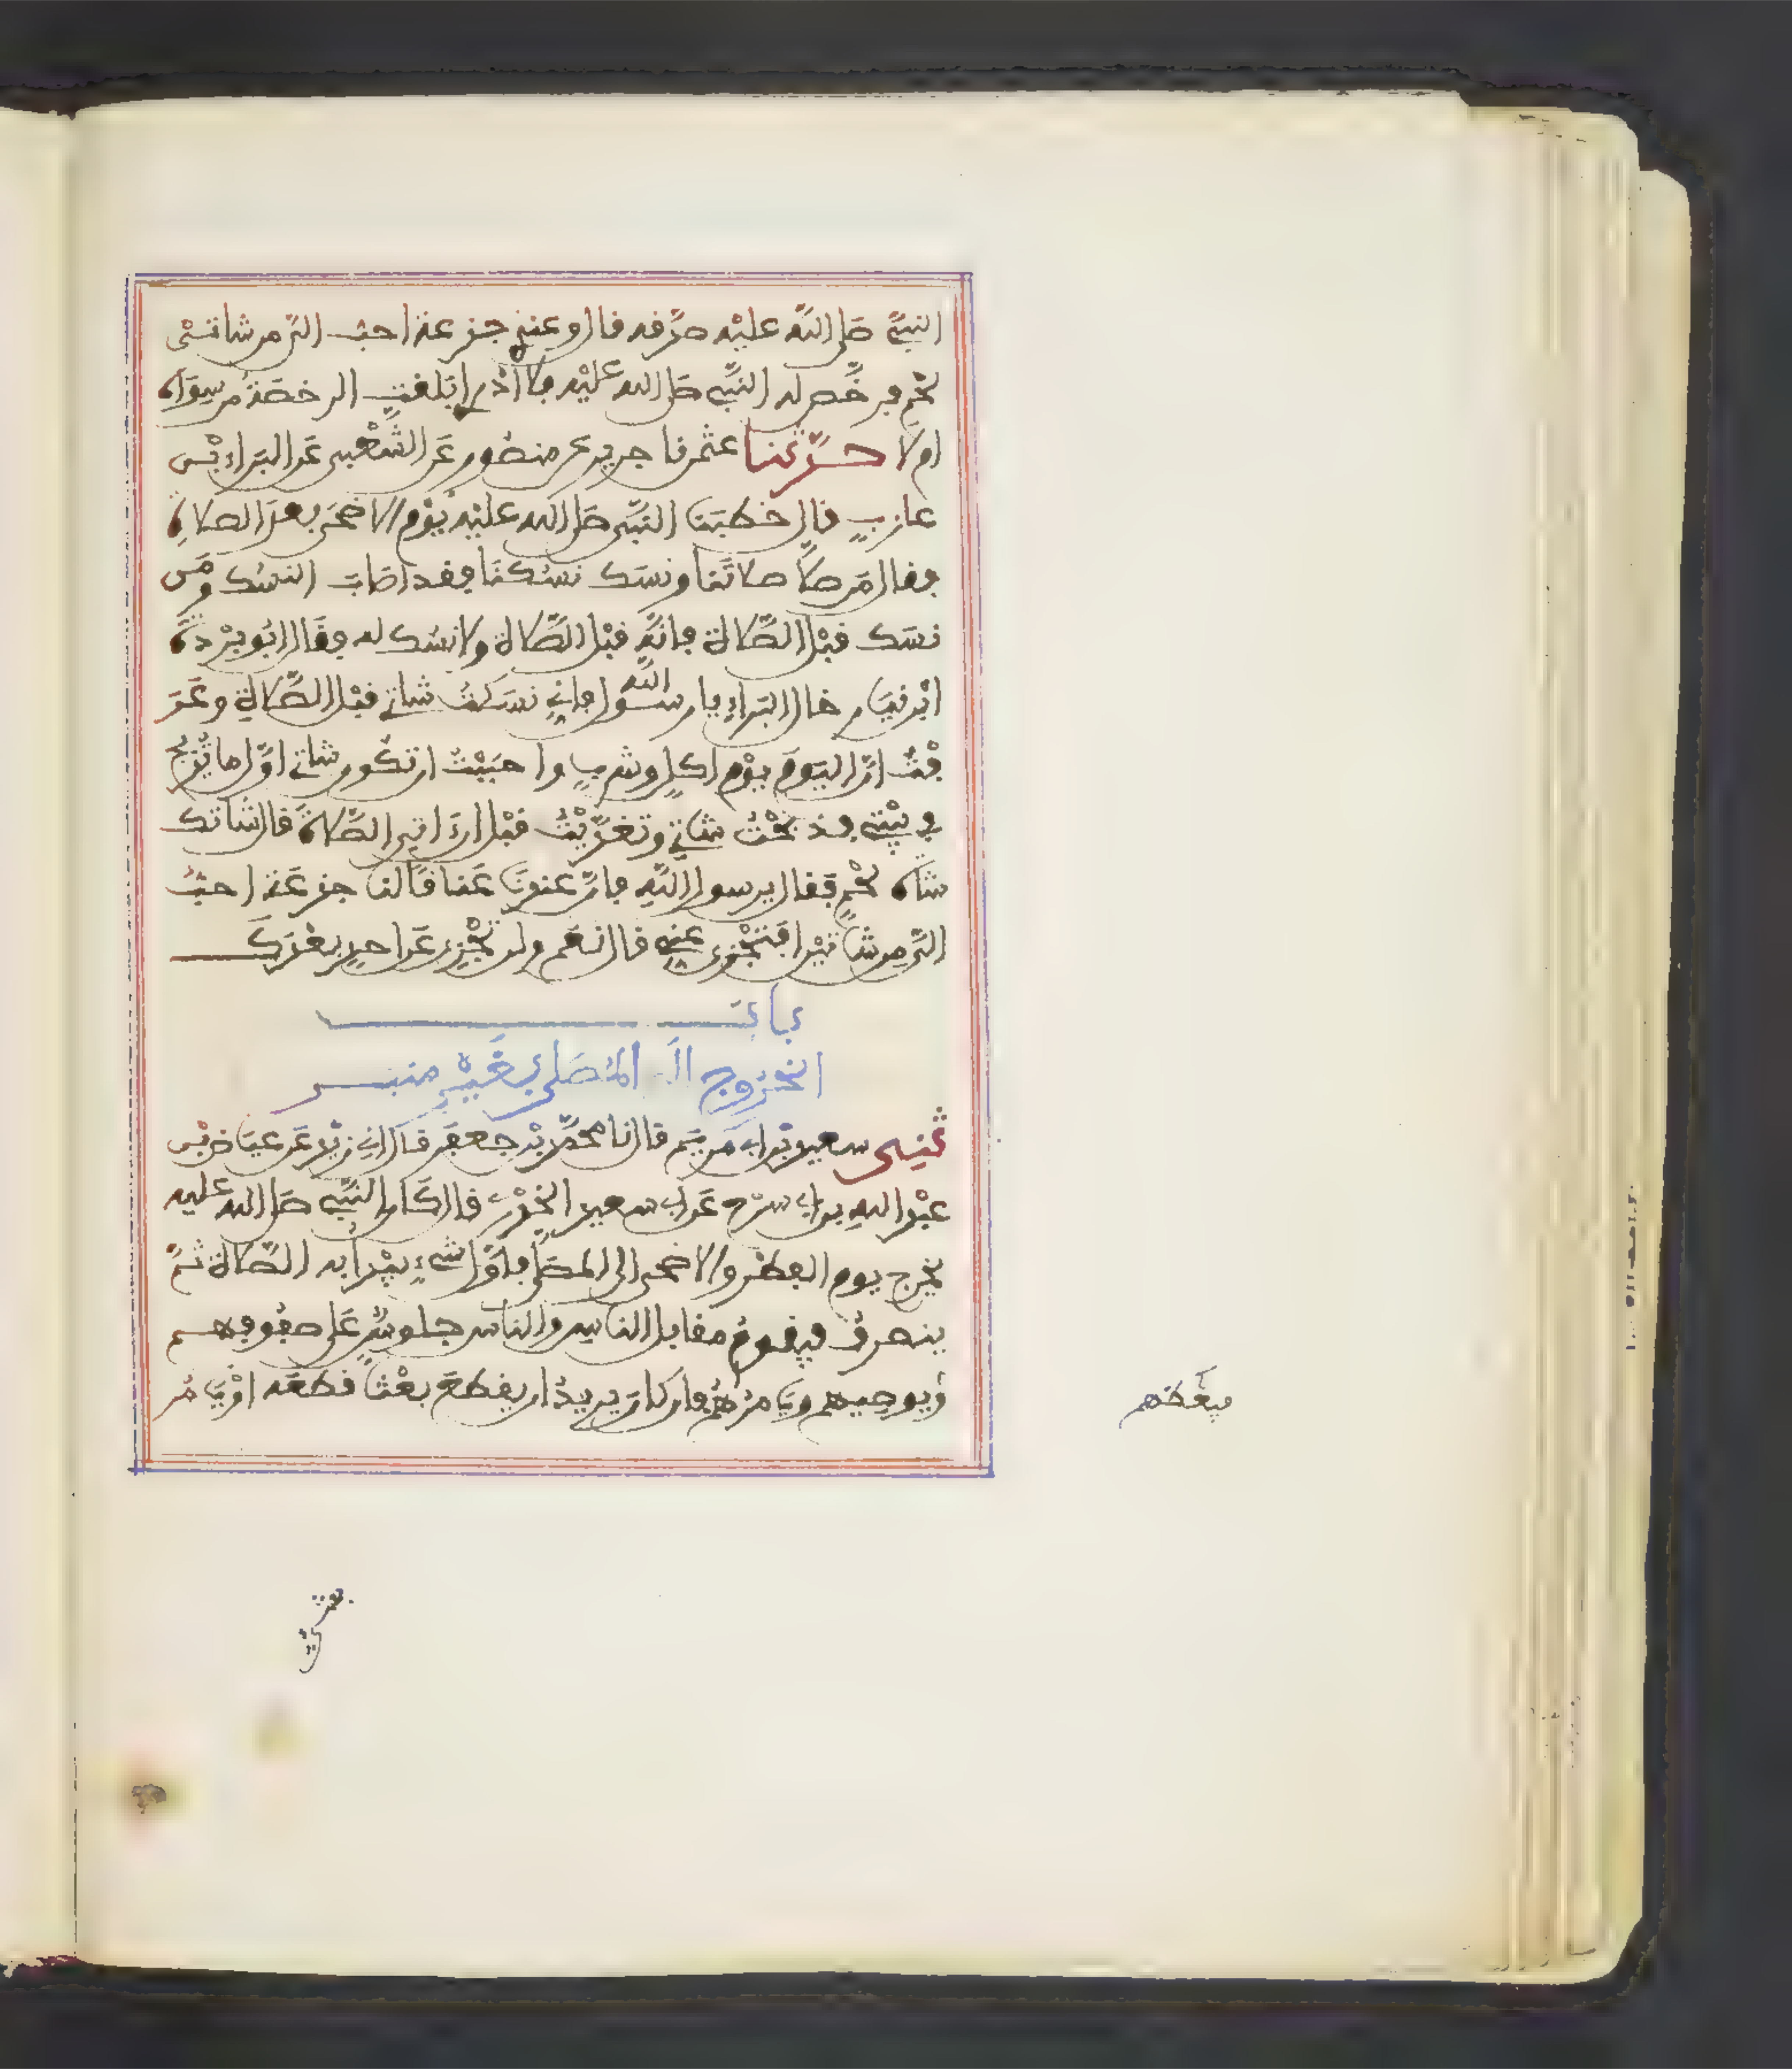 النبيَّ صَلى اللَّه عليْه صدَّقه قال وعندي جذعة احبُّ الىَّ من شاتىْ
لحْمٍ فرخَّص له النبيُّ صَلى الله عليْه فلا أدْرى ابلغتِ الرخصَةُ من سِوَاهُ
ام لا حدَّثنا عثمن نا جرير عن منصُور عَن الشَّعْبى عَن البَراء بْن
عازبٍ قال خطبَنا النبىُّ صَلى الله عليْه يوْم الاضحَى بعدَ الصلاةِ
فقال مَن صلَّا صلاتَنا ونسَك نسُكنَا فقد اصَابَ النسُك ومَن
نسَك قبْل الصَّلاة فانَّه قبْل الصَّلاة ولا نسُك له فقَال ابُو بُرْدةَ
ابْن نيَار خال البَراءِ يا رسُول اللَّه فانِى نسَكتُ شاتى قبْل الصَّلاةِ وعَرَ
فْتُ انَّ اليَومَ يوْم اكلٍ وشربٍ واحبَبْتُ ان تكُون شاتى اوَّل ما يُذبح
فى بيْتى فذبحْتُ شاتى وتغدَّيْتُ قبْل ان اتى الصَّلاةَ قال شَاتك
شاةُ لحْمٍ فقال يرسول اللَّه فانَّ عندنَا عَناقًا لنا جذعَة احبُّ
الىَّ من شاتيْن افتجْزى عنِى قال نعَم ولن تجْزِى عَن احدٍ بعْدَك
بابُ
الخُرُوج الَى المُصَلى بغَيْرِ منبر
ثنِى سعيد بْن ابى مَريَم قال نا محمَّد بْن جعفَر قَال انى زيْد عَن عيَاض بْن
عبْد اللهِ بن ابى سرْح عَن ابى سعيد الخدْرى قال كَان النبىُّ صَلى الله عليه
يخرج يوم الفِطْر والاضحى الى المصَلَّى فاوَّل شىْءٍ يبْدأ به الصَّلاة ثمَّ
ينصرفُ فيقومُ مقابل الناسِ والناس جلوسٌ عَلى صفُوفِهم
فيعَظهم
ويوصِيهم ويَامُرُهُم فان كانَ يريدُ ان يقطعَ بعْثًا قطعَه اوْ يَامُر
بشىْءٍ